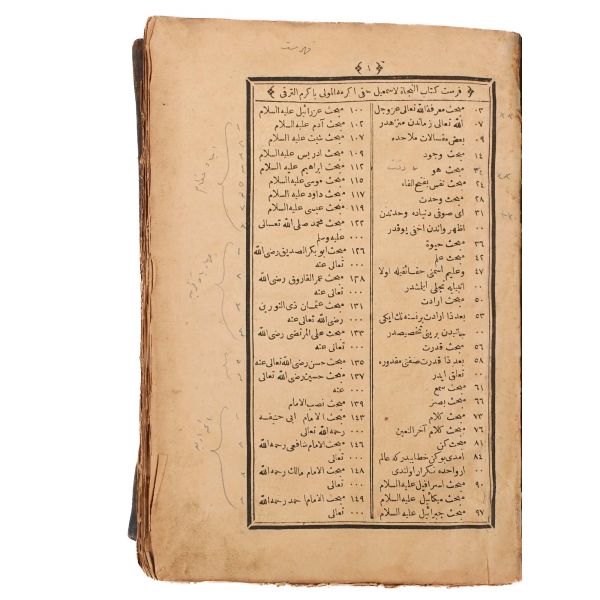 فهرست
١
فرست كتاب النجاة لاسمعيل حقى اكرمه المولى باكرم الترقى
٠٣ مبحث معرفة الله تعالى عز وجل
٠٧ الله تعالى زماندن منزهدر
٠٩ بعض مقسالات ملاحده
١٤ مبحث وجود
٣٤ مبحث هو
٢٤ مبحث نفس بفتح الفاء
٢٨ مبحث وحدت
٣١ اى صوفى دنياده وحدتدن
٠٠ اظهر واندن اخفى يوقدر
٣٦ مبحث حيوة
٤٢ مبحث علم
٤٧ وعليم اسمنى حقائقيله اولا
٠٠ انبيايه تجلى ايلمشدر
٥٠ مبحث ارادت
٥٣ بعد ذا ارادت بر نسنه نك ايكى
٠٠ جانبدن برينى تخصيصدر
٥٦ مبحث قدرت
٥٨ بعد ذا قدرت صفتى مقدوره
٠٠ تعلق ايدر
٦١ مبحث سمع
٦٦ مبحث بصر
٧٣ مبحث كلام
٧٦ مبحث كلام آخر النعين
٨١ مبحث كن
٨٤ امدى بو كن خطابيدر كه عالم
٠٠ ارواحده تكرار اولندى
٩٠ مبحث اسرافيل عليه السلام
٠٠ مبحث ميكائيل عليه السلام
٩٧ مبحث جبرائيل عليه السلام
١٠٠ مبحث عزرائيل عليه السلام
١٠٢ مبحث آدم عليه السلام
١٠٧ مبحث شيث عليه السلام
١٠٩ مبحث ادريس عليه السلام
١١٢ مبحث ابراهيم عليه السلام
١١٥ مبحث موسى عليه السلام
١١٧ مبحث داود عليه السلام
١١٩ مبحث عيسى عليه السلام
١٢٢ مبحث محمد صلى الله تعسالى
٠٠٠ عليه وسلم
١٢٦ مبحث ابو بكر الصديق رضى الله
٠٠٠ تعالى عنه
١٢٨ مبحث عمر الفاروق رضى الله
٠٠٠ تعالى عنه
١٣١ مبحث عثمان ذى النورين
٠٠٠ رضى الله تعالى عنه
١٣٣ مبحث على المرتضى رضى الله
٠٠٠ تعالى عنه
١٣٥ مبحث حسن رضى الله تعالى عنه
١٣٧ مبحث حسين رضى الله تعالى
٠٠٠ عنه
١٣٩ مبحث نصب الامام
١٤٣ مبحث الامام ابى حنيفسه
٠٠٠ رحمه الله تعالى
١٤٦ مبحث الامام شافعى رحمه الله
٠٠٠ تعالى
١٤٨ مبحث الامام مالك رحمه الله
٠٠٠ تعالى
١٤٩ مبحث الامام احمد رحمه الله
٠٠٠ تعالى